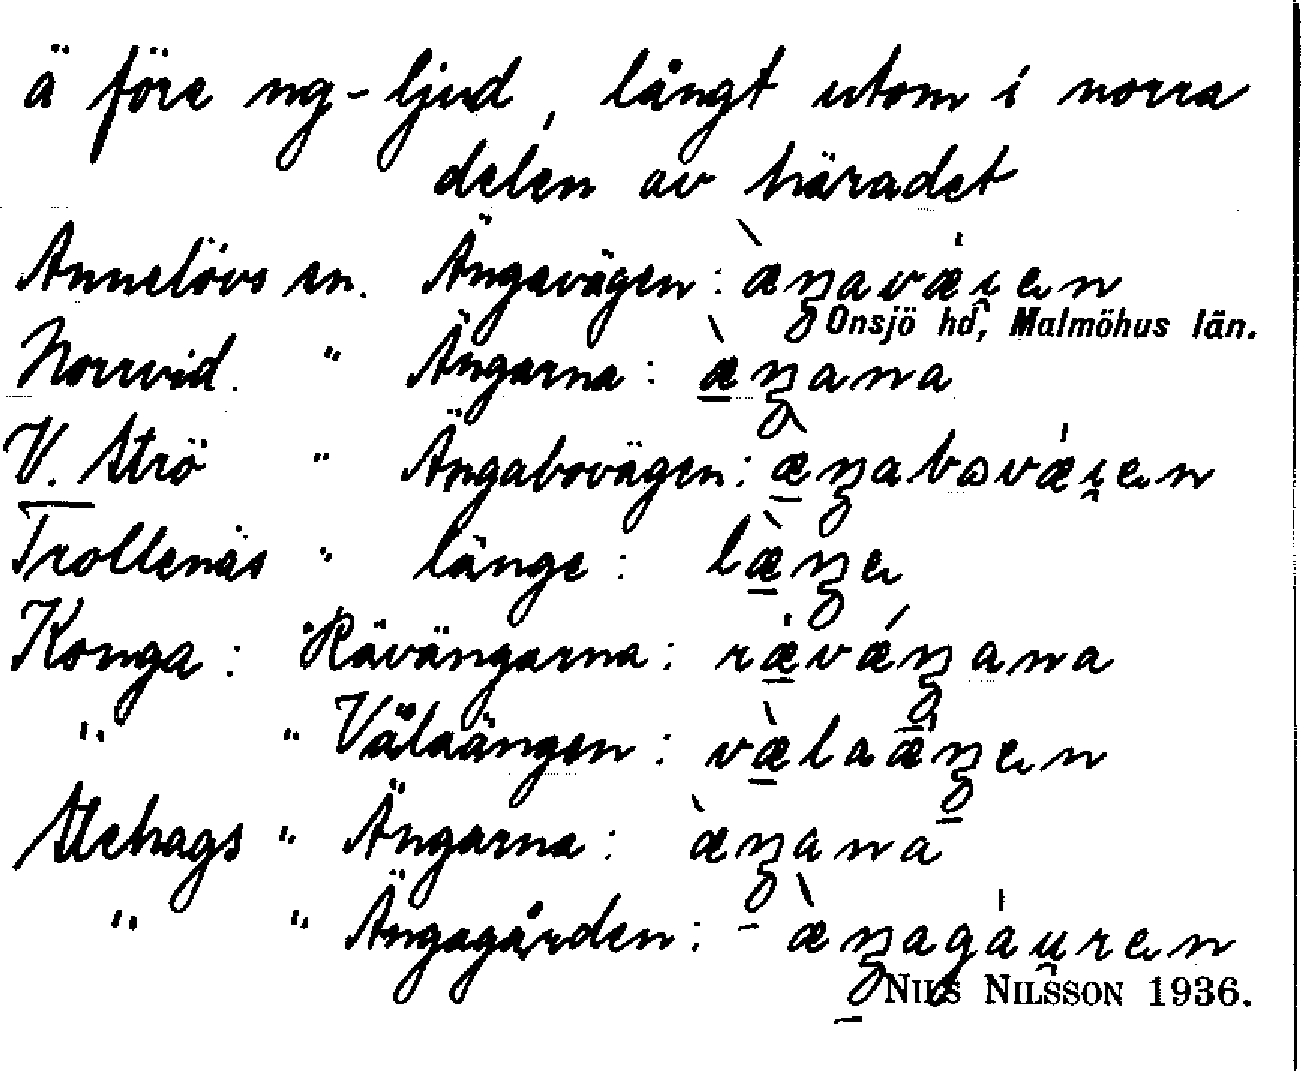 ä före ng-ljud, långt utom i norra
delen av häradet
Annelövs sn. Ängavägen: æ̀ŋavǽi̯en
Onsjö hd, Malmöhus län.
Norrvid. " Ängarna: æ̱̀ŋana
V. Strö " Ängabovägen: æ̱̀ŋabovǽi̯en
Trollenäs " länge: læ̱̀ŋe
Konga: Rävängarna: ræ̱̇vǽŋana
" " Välaängen: væ̱̀laæ̱̇ŋen
Stehags " Ängarna: æ̀ŋana
" " Ängagården: æ̀ŋagáu̯ren
NILS NILSSON 1936.